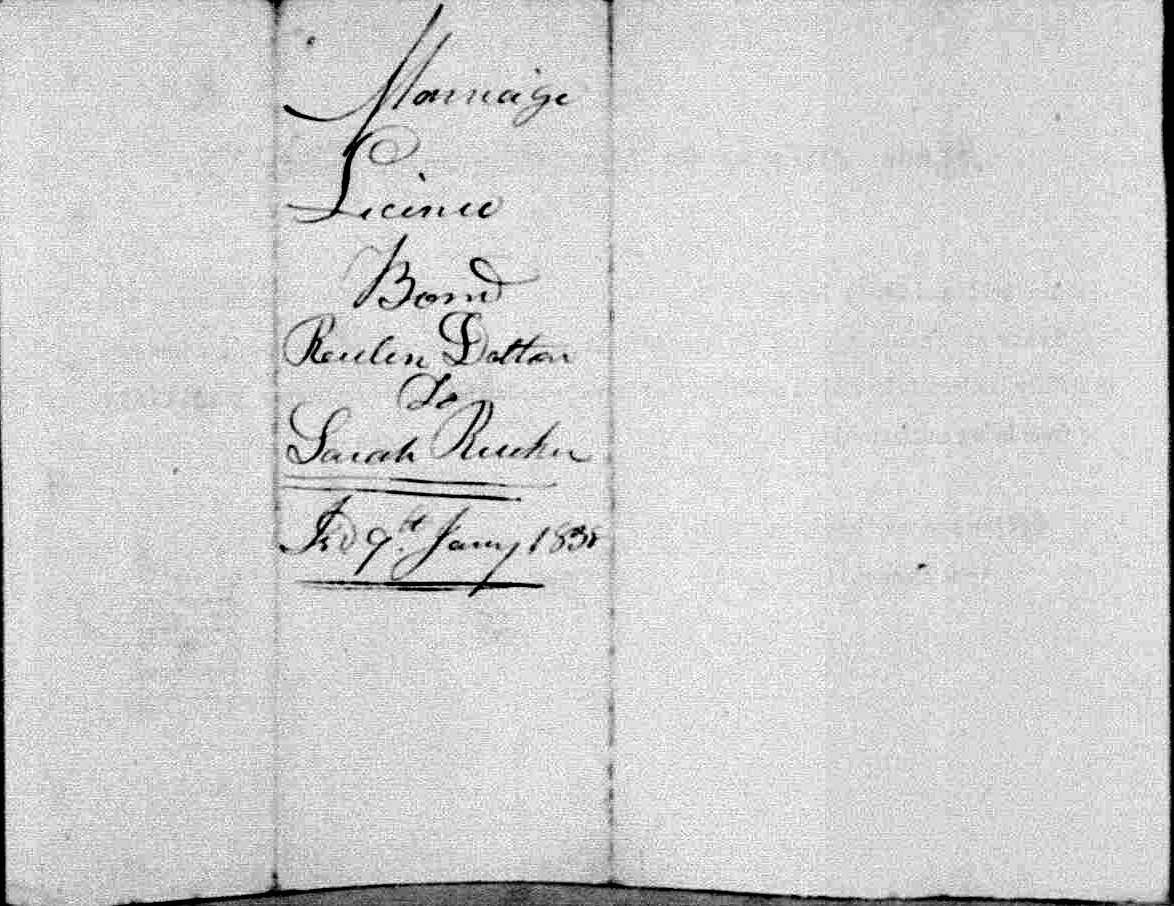 Marriage
Licince
Bond
Reuben Dalton
To
Sarah Rucker
Isd 9th Jany 1838